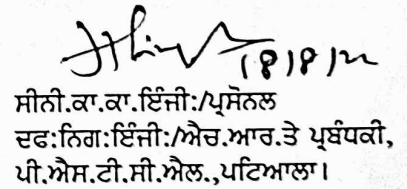 18/8/22
ਸੀਨੀ.ਕਾ.ਕਾ.ਇੰਜੀ:/ਪ੍ਰਸੋਨਲ
ਦਫ:ਨਿਗ:ਇੰਜੀ:/ਐਚ.ਆਰ.ਤੇ ਪ੍ਰਬੰਧਕੀ,
ਪੀ.ਐਸ.ਟੀ.ਸੀ.ਐਲ.,ਪਟਿਆਲਾ।